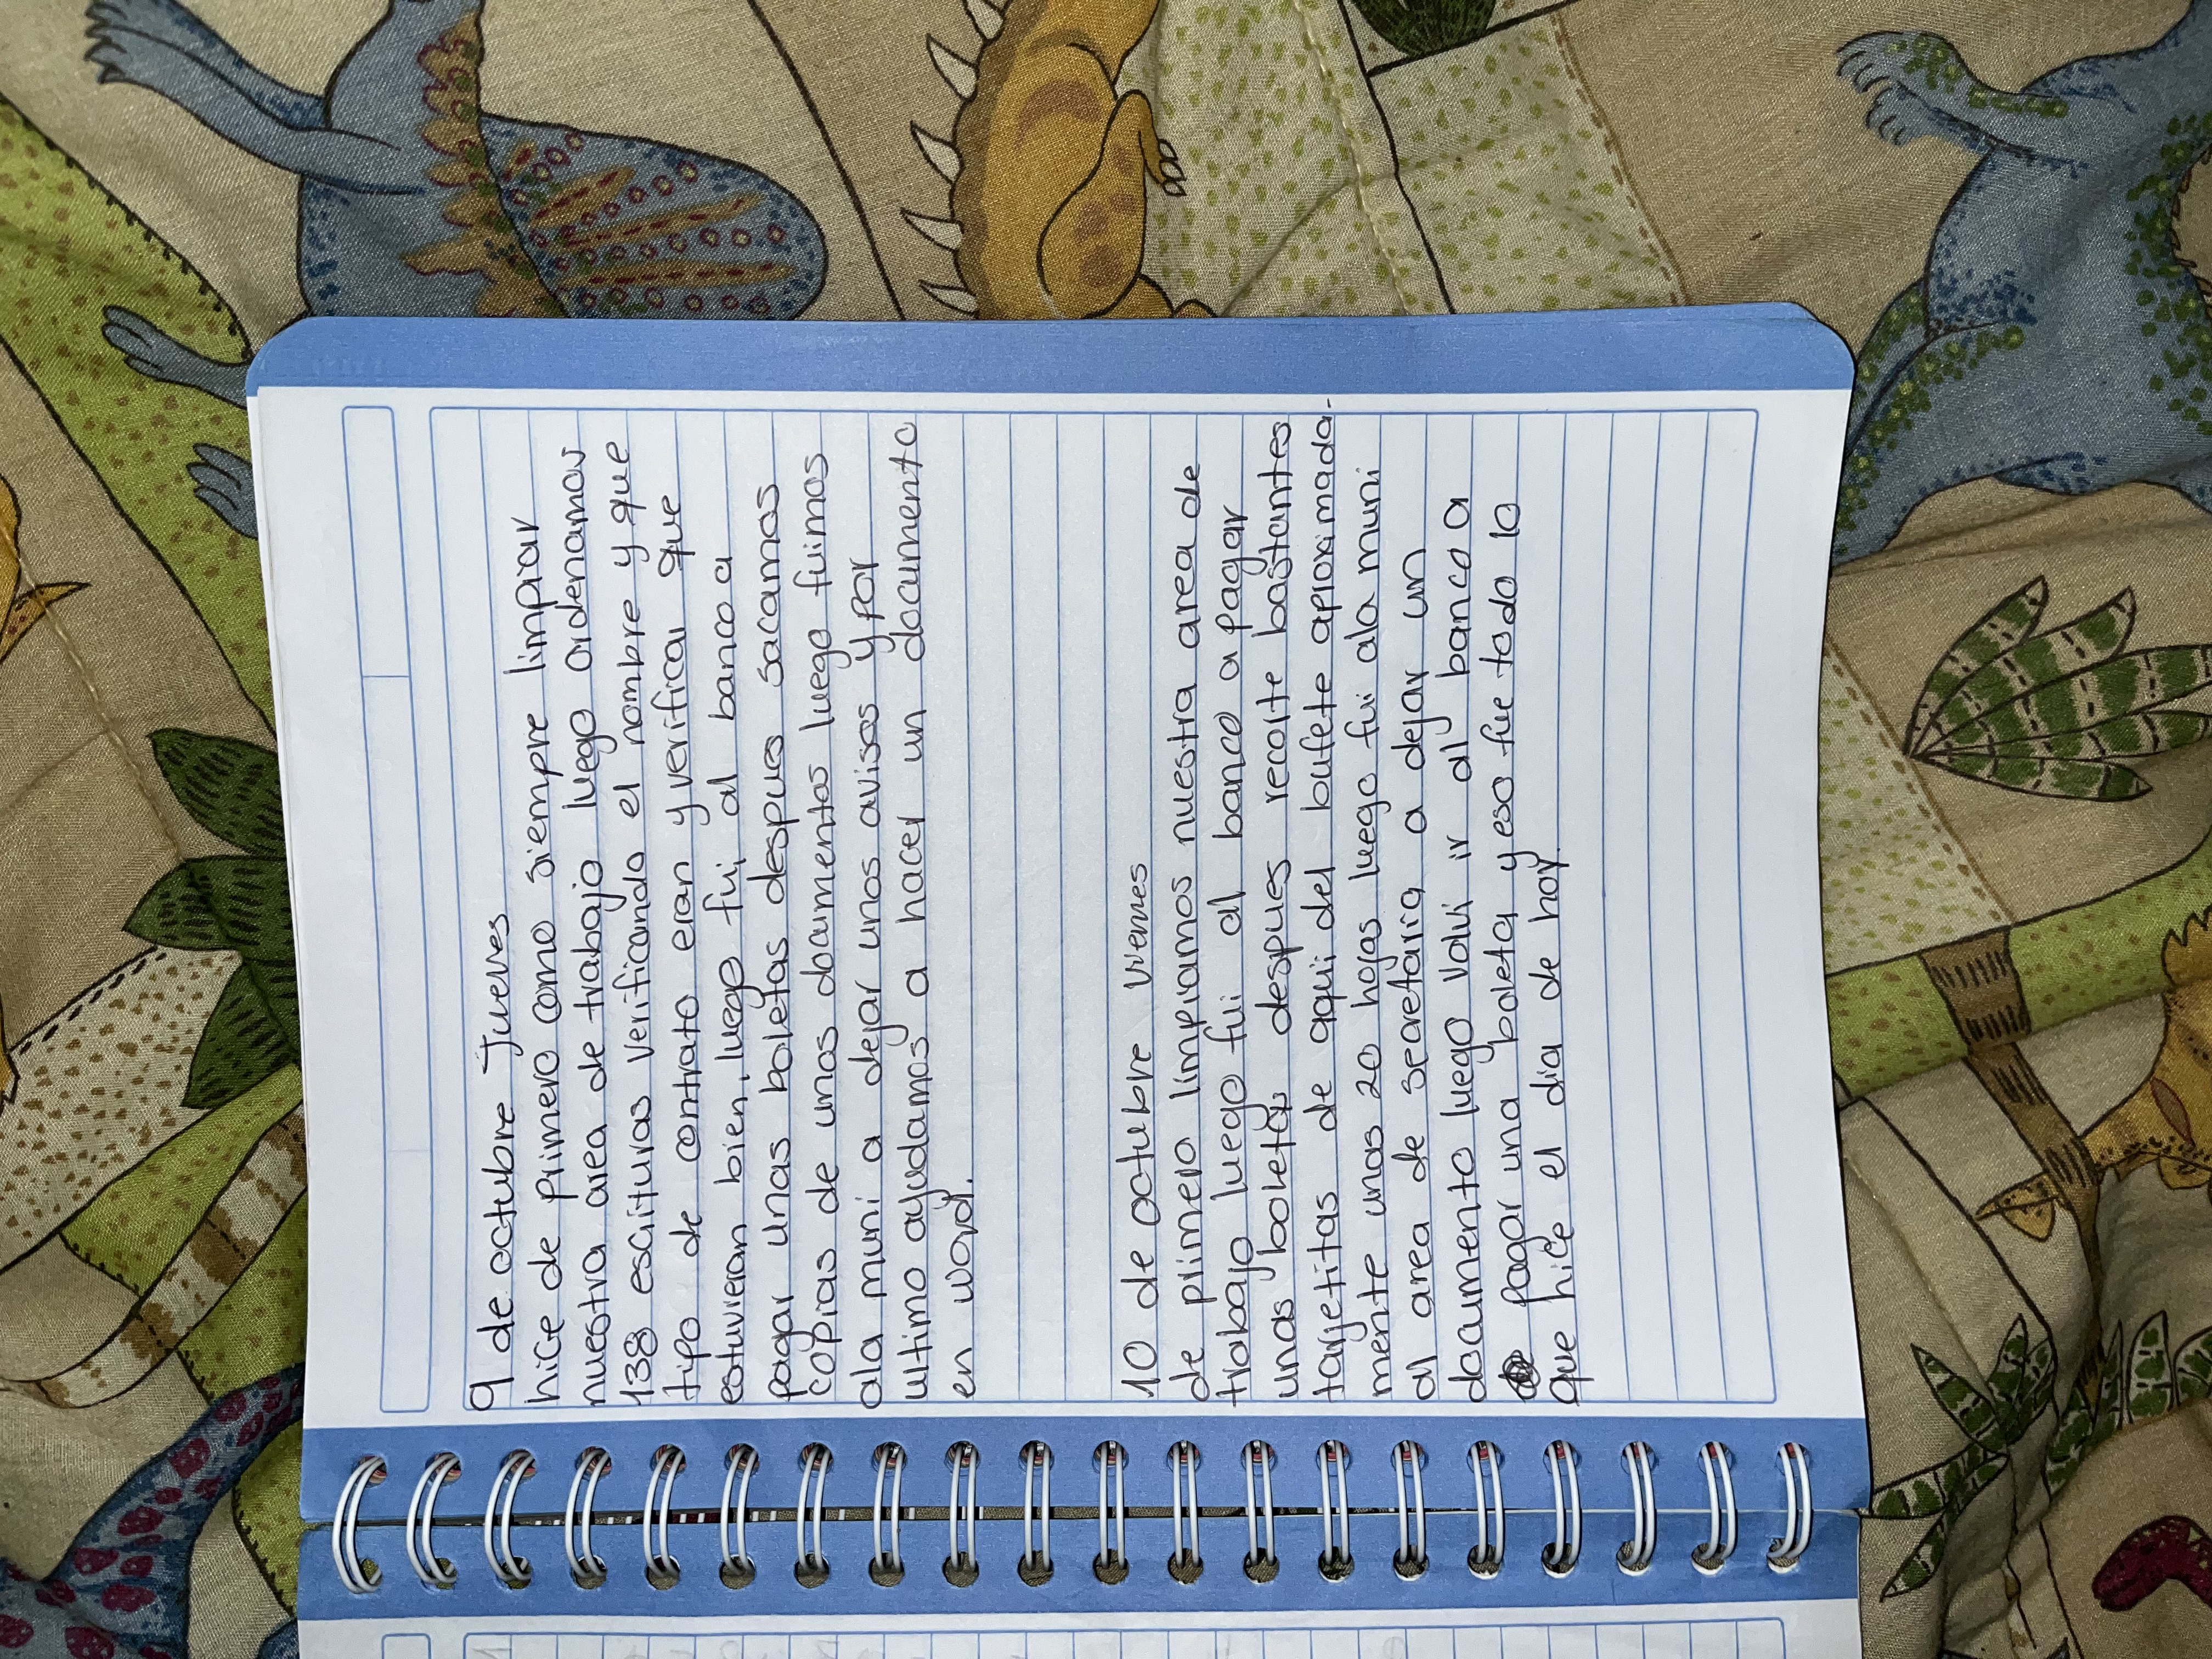 9 de octubre jueves
hice de primero como siempre limpiar
nuestra area de trabajo luego ordenamos
138 escrituras verificando el nombre y que
tipo de contrato eran y verificar que
estuvieran bien, luego fui al banco a
pagar unas boletas despues sacamos
copias de unos documentos luego fuimos
ala muni a dejar unos avisos y por
ultimo ayudamos a hacer un documento
en word.
10 de octubre viernes
de primero limpiamos nuestra area de
trabajo luego fui al banco a pagar
unas boletas despues recorte bastantes
tarjetitas de aqui del bufete aproximada-
mente unas 20 hojas luego fui ala muni
al area de secretaria a dejar un
documento luego volvi ir al banco a
pagar una boleta y eso fue todo lo
que hice el dia de hoy.